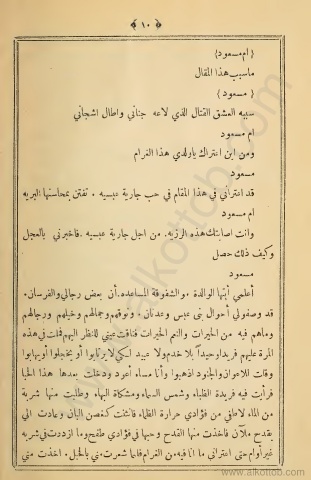 ﴿ ١٠ ﴾
{ ام مسعود }
ماسبب هذا المقال
{ مسعود }
سببه العشق القتال الذي لاعه جناني واطال اشجاني
ام مسعود
ومن اين اعتراك ياولدي هذا الغرام
مسعود
قد اعتراني في هذا المقام في حب جارية عبسيه . تفتن بمحاسنها البريه
ام مسعود
وانت اصابتك هذه الرزيه . من اجل جارية عبسيه . فاخبرني بالعجل
وكيف ذلك حصل
مسعود
أعلمي أيتها الوالدة . والشفوقة المساعده . أن بعض رجالي والفرسان .
قد وصفولي أحوال بنى عبس وعدنان . ونوقهم وجمالهم وخيلهم ورجالهم
وماهم فيه من الخيرات والنعم الخيرات فتاقت عيني للنظر اليهم فملت في هذه
المرة عليهم فريدا وحيداً بلا خدم ولا عبيد لكي لا يرتابوا أو يخجلوا أو يهابوا
وقات للاعوان والجنود اذهبوا وأنا مساء أعود ودخلت بعدها هذا الحبا
فرأيت فيه فريدة الظباء وشمس السماء ومشكاة البهاء وطلبت منها شربة
من الماء لاطفي من فؤادي حرارة الظماء فانثنت كغصن البان وعادت الي
بقدح ملآن فاخذت منها القدح وحبها في فؤادي طفح وما ازددت في شربه
غير أوام حتى اعتراني ما انا فيه من الغرام فلما شعرت مني بالخبل . اخذت مني
www.alkottob.com
www.alkottob.com